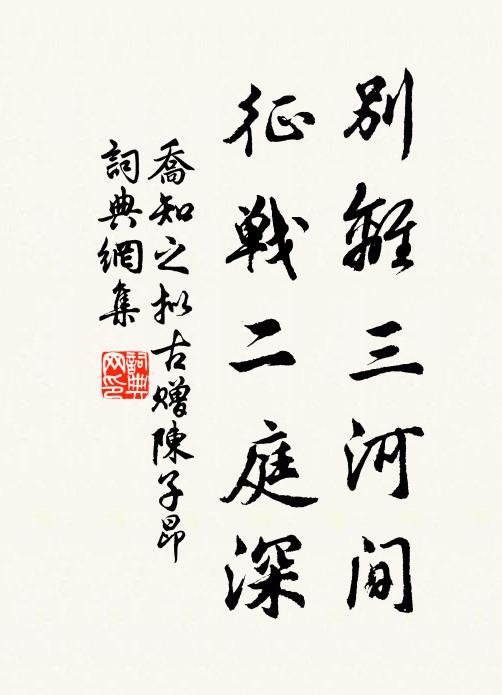 別離三河间
征戦二庭深
喬知之拟古赠陳子昂
詞典網集
詞典网印